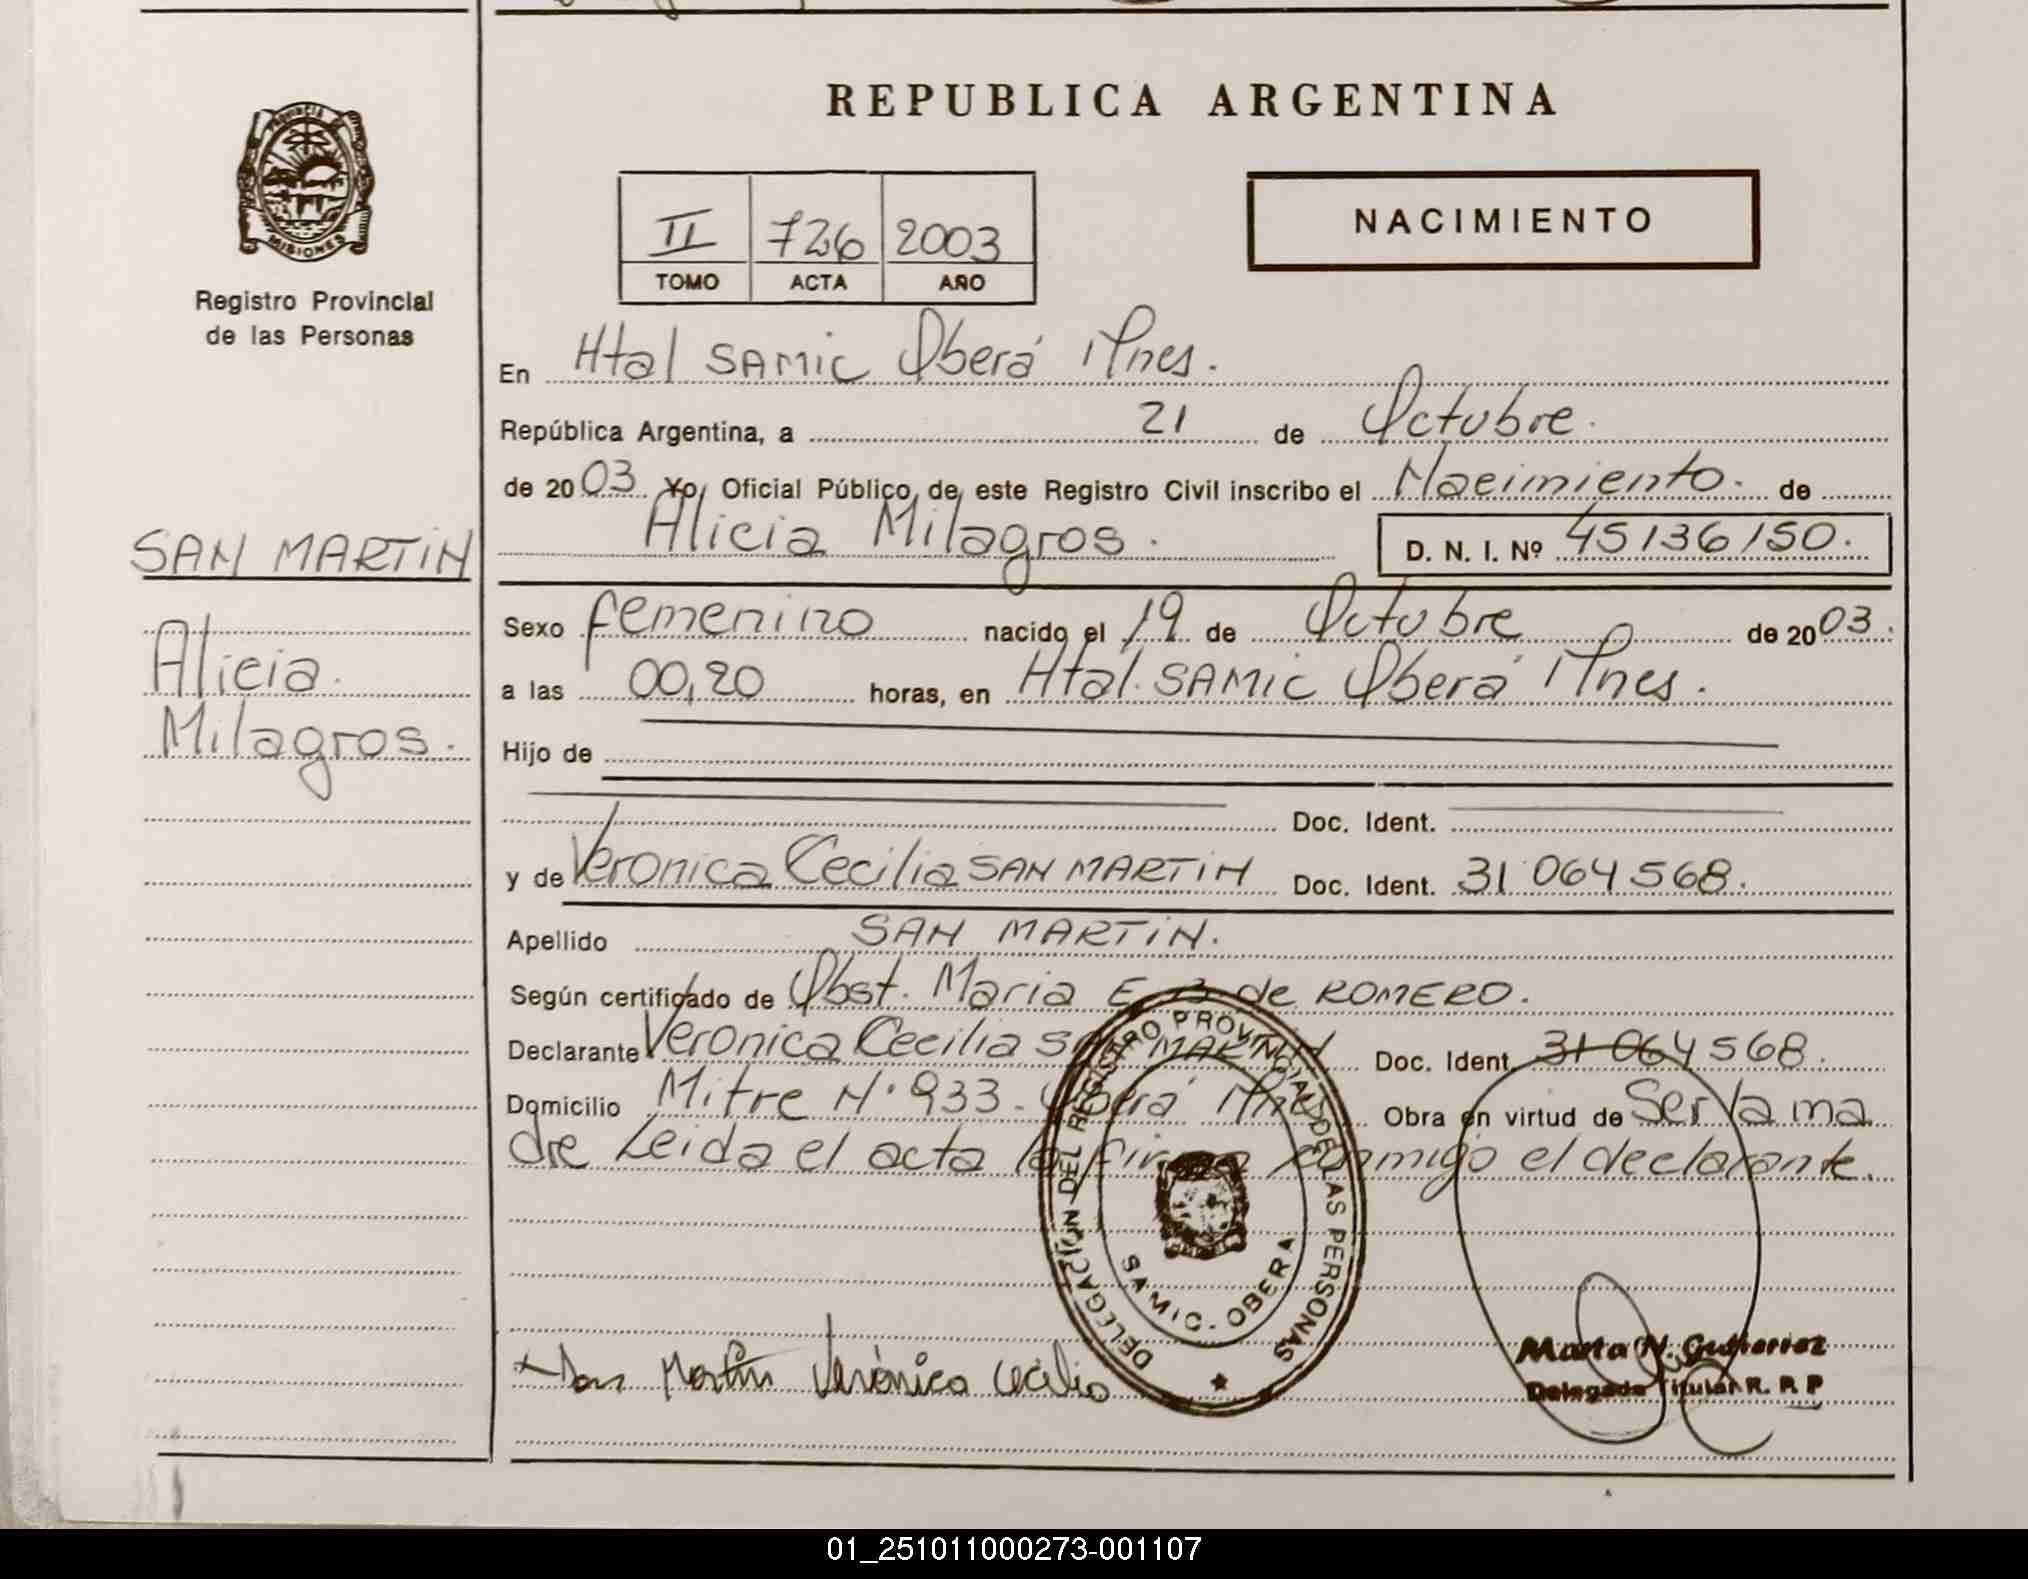 REPUBLICA ARGENTINA
PROVINCIA DE
MISIONES
Registro Provincial
de las Personas
II 726 2003
TOMO ACTA AÑO
NACIMIENTO
En Htal SAMIC Oberá Mnes.
República Argentina, a 21 de Octubre.
de 2003 Yo, Oficial Público, de este Registro Civil inscribo el Nacimiento. de
Alicia Milagros. D. N. I. Nº 45136150.
SAN MARTIN
Alicia
Milagros.
Sexo femenino nacido el 19 de Octubre de 2003.
a las 00,20 horas, en Htal. SAMIC Oberá Mnes.
Hijo de
Doc. Ident.
y de Veronica Cecilia SAN MARTIN Doc. Ident. 31 064 568.
Apellido SAN MARTIN.
Según certificado de Obst. Maria E B de ROMERO.
Declarante Veronica Cecilia SAN MARTIN Doc. Ident. 31 064 568.
Domicilio Mitre N° 933. Oberá Mnes Obra en virtud de Ser la ma
dre Leida el acta la firma conmigo el declarante.
DELEGACION DEL REGISTRO PROVINCIAL DE LAS PERSONAS
SAMIC - OBERA
San Martin Verónica Cecilia
Marta N. Gutierrez
Delegada Titular R. P. P
01_251011000273-001107